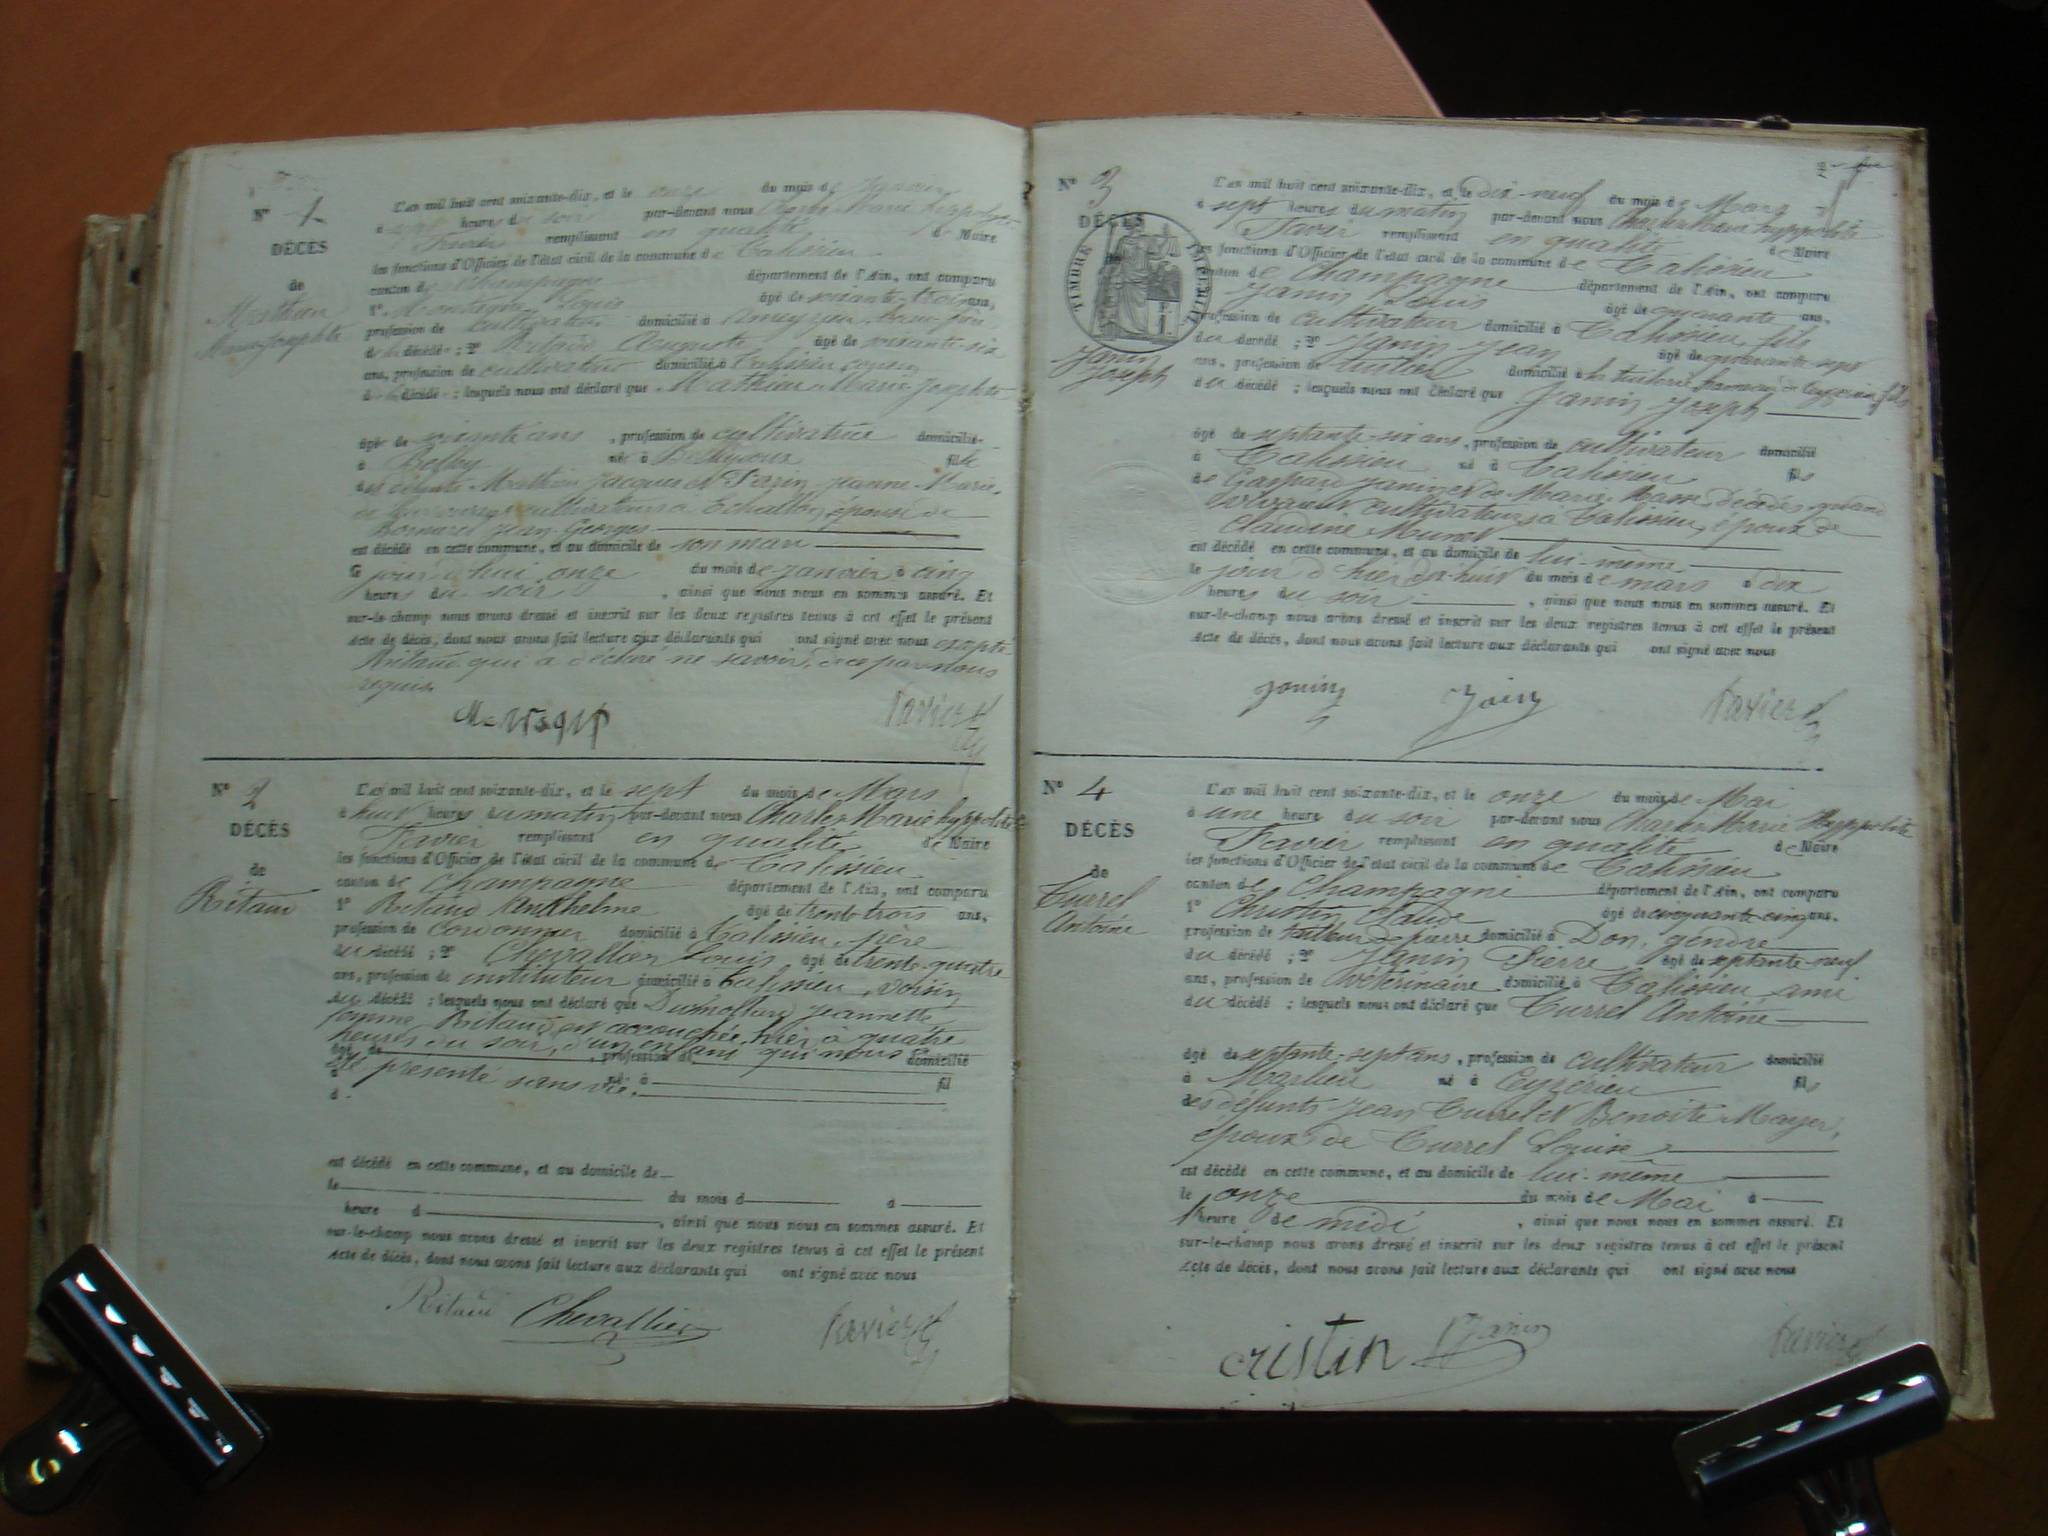 N° 1
DÉCÈS
de
Mathieu
Marie Josephte
L'an mil huit cent soixante-dix, et le onze du mois de Janvier
à heures du soir par-devant nous Charles Marie hyppolite
Favier remplissant en qualité de Maire
les fonctions d'Officier de l'état civil de la commune de Talissieu
canton de Champagne département de l'Ain, ont comparu
1° Louis âgé de soixante-trois ans,
profession de cultivateur domicilié à Ameyzieu, beau-frère
de la décédée ; 2° Ritaud Auguste âgé de soixante-six
ans, profession de cultivateur domicilié à Talissieu, voisin
de la décédée ; lesquels nous ont déclaré que Mathieu Marie Josephte
âgée de soixante ans , profession de cultivatrice domiciliée
à née à Belleydoux fille
des défunts Mathieu Jacques et Perrin Jeanne-Marie,
de leur vivant cultivateurs à Echallon, épouse de
Bornarel Jean-Georges
est décédée en cette commune, et au domicile de son mari
le jour d'hui onze du mois de janvier à cinq
heures du soir , ainsi que nous nous en sommes assuré. Et
sur-le-champ nous avons dressé et inscrit sur les deux registres tenus à cet effet le présent
Acte de décès, dont nous avons fait lecture aux déclarants qui ont signé avec nous excepté
Ritaud qui a déclaré ne savoir, de ce par nous
requis.
favier
N° 2
DÉCÈS
de
Ritaud
L'an mil huit cent soixante-dix, et le sept du mois de Mars
à huit heures du matin par-devant nous Charles Marie hyppolite
Favier remplissant en qualité de Maire
les fonctions d'Officier de l'état civil de la commune de Talissieu
canton de Champagne département de l'Ain, ont comparu
1° Ritaud Anthelme âgé de trente trois ans,
profession de cordonnier domicilié à Talissieu, père
du décédé ; 2° Chevallier Louis âgé de trente-quatre
ans, profession de instituteur domicilié à Talissieu, voisin
du décédé ; lesquels nous ont déclaré que Dumollard Jeannette
femme Ritaud est accouchée hier à quatre
heures du soir, d'un enfant qui nous a
âgé de , profession de domicilié
été présenté sans vie.
à né à fil
d
est décédé en cette commune, et au domicile de
le du mois d à
heure d , ainsi que nous nous en sommes assuré. Et
sur-le-champ nous avons dressé et inscrit sur les deux registres tenus à cet effet le présent
Acte de décès, dont nous avons fait lecture aux déclarants qui ont signé avec nous
Ritaud Chevallier favier
N° 3
DÉCÈS
TIMBRE IMPÉRIAL
Janin
Joseph
L'an mil huit cent soixante-dix, et le dix-neuf du mois de Mars
à sept heures du matin par-devant nous Charles Marie hyppolite
Favier remplissant en qualité de Maire
les fonctions d'Officier de l'état civil de la commune de Talissieu
canton de Champagne département de l'Ain, ont comparu
Janin Louis âgé de quarante ans,
profession de cultivateur domicilié à Talissieu, fils
du décédé ; 2° Janin Jean âgé de quarante-sept
ans, profession de tuilier domicilié à la tuilerie hameau de Ceyzerieu, fils
du décédé ; lesquels nous ont déclaré que Janin Joseph
âgé de septante-six ans, profession de cultivateur domicilié
à Talissieu né à Talissieu fils
de Gaspard Janin et de Marie Masse, décédés quand
vivants cultivateurs à Talissieu, époux de
Claudine Munet
est décédé en cette commune, et au domicile de lui-même
le jour d'hier dix-huit du mois de mars à dix
heures du soir , ainsi que nous nous en sommes assuré. Et
sur-le-champ nous avons dressé et inscrit sur les deux registres tenus à cet effet le présent
Acte de décès, dont nous avons fait lecture aux déclarants qui ont signé avec nous
janin Janin favier
N° 4
DÉCÈS
de
Turrel
Antoine
L'an mil huit cent soixante-dix, et le onze du mois de Mai
à une heure du soir par-devant nous Charles Marie Hyppolite
Favier remplissant en qualité de Maire
les fonctions d'Officier de l'état civil de la commune de Talissieu
canton de Champagne département de l'Ain, ont comparu
1° Christin Claude âgé de cinquante-cinq ans,
profession de tailleur de pierre domicilié à Don, gendre
du décédé ; 2° Janin Pierre âgé de septante-neuf
ans, profession de vétérinaire domicilié à Talissieu, ami
du décédé ; lesquels nous ont déclaré que Turrel Antoine
âgé de septante-sept ans , profession de cultivateur domicilié
à Marlieu né à Ceyzérieu fils
des défunts Jean Turrel et Benoite Mayer,
époux de Turrel Louise
est décédé en cette commune, et au domicile de lui-même
le onze du mois de Mai à
1 heure de midi , ainsi que nous nous en sommes assuré. Et
sur-le-champ nous avons dressé et inscrit sur les deux registres tenus à cet effet le présent
Acte de décès, dont nous avons fait lecture aux déclarants qui ont signé avec nous
cristin Janin favier